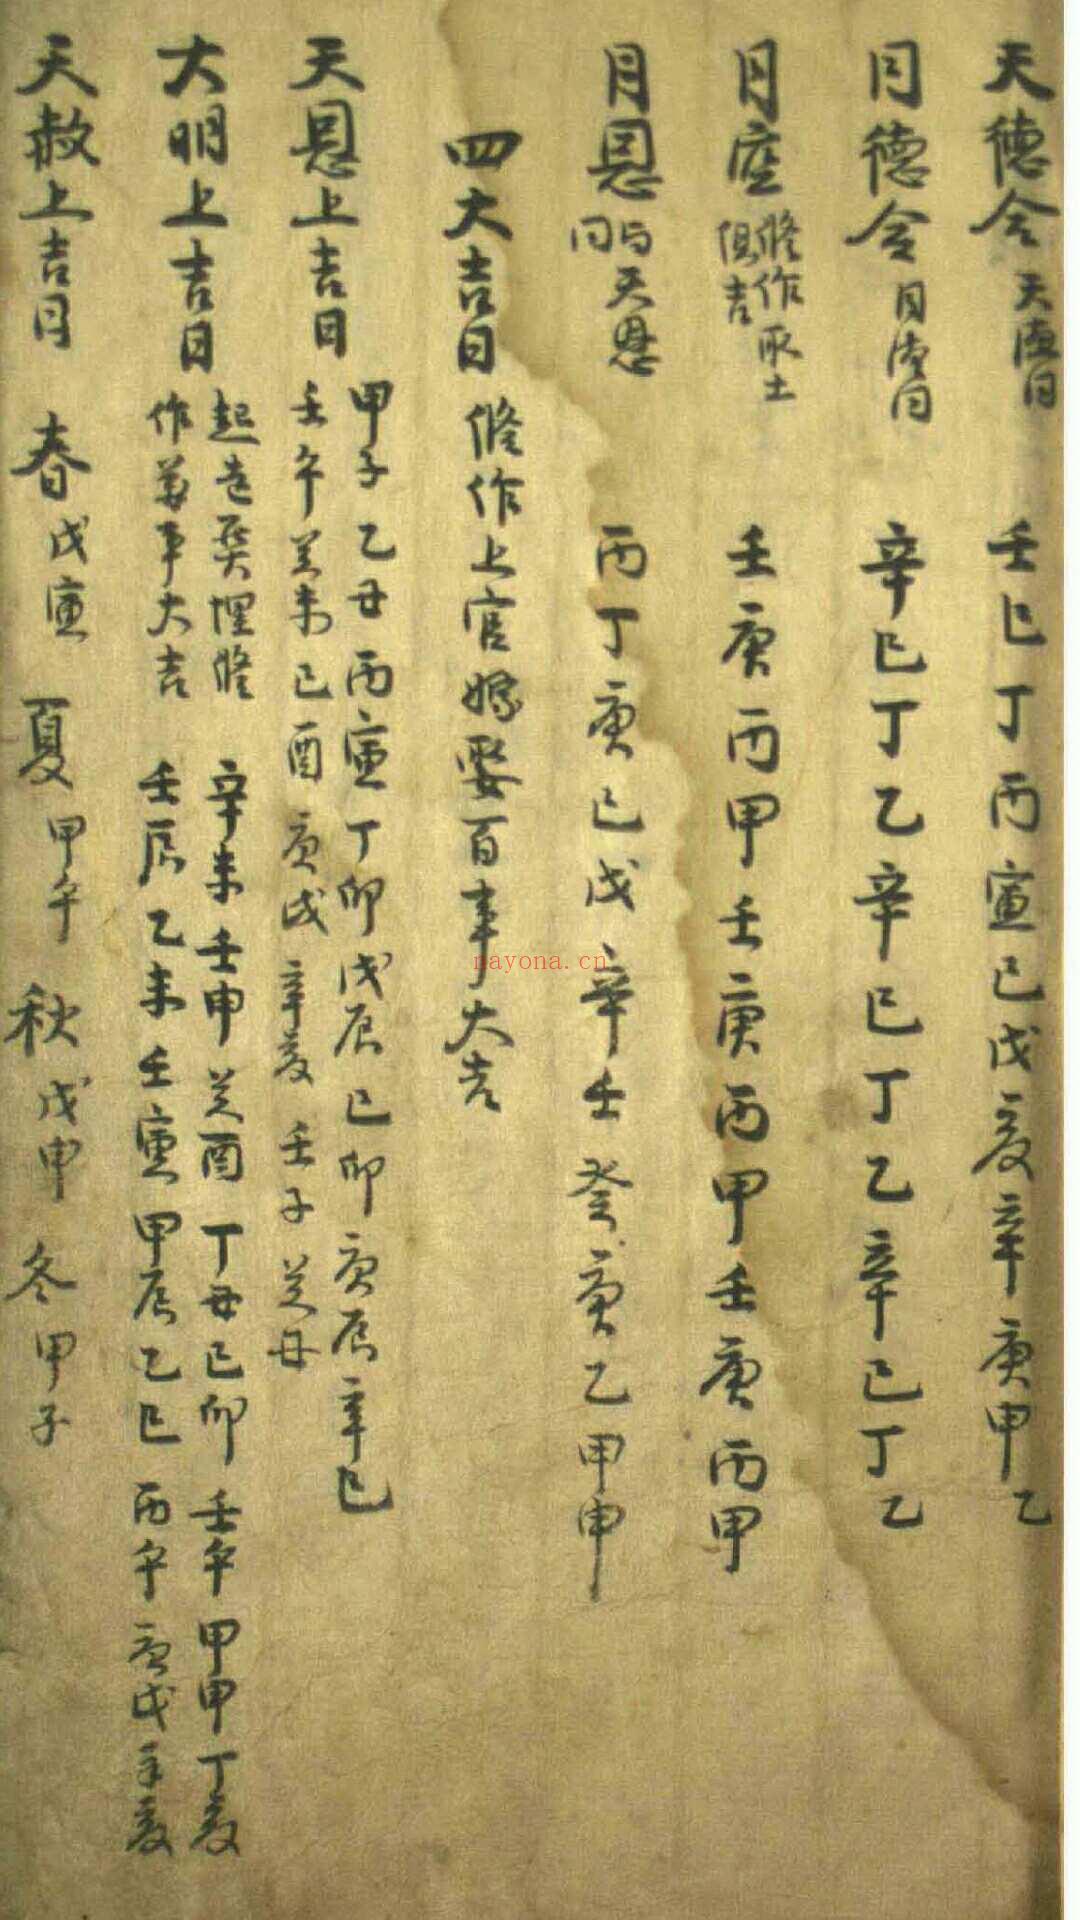 天德合 天德同 壬巳丁丙寅己戊亥辛庚甲乙
月德合 月德同 辛巳丁乙辛巳丁乙辛巳丁乙
月空 修作取土俱吉 壬庚丙甲壬庚丙甲壬庚丙甲
月恩 与天恩同 丙丁庚己戊辛壬癸庚乙甲申
四大吉日 修作上官嫁娶百事大吉
天恩上吉日 甲子乙丑丙寅丁卯戊辰己卯庚辰辛巳
壬午癸未己酉庚戌辛亥壬子癸丑
大明上吉日 起造葬埋修作萬事大吉 辛未壬申癸酉丁丑己卯壬午甲申丁亥
壬辰乙未壬寅甲辰乙巳丙午庚戌辛亥
天赦上吉日 春戊寅 夏甲午 秋戊申 冬甲子
nayona.cn